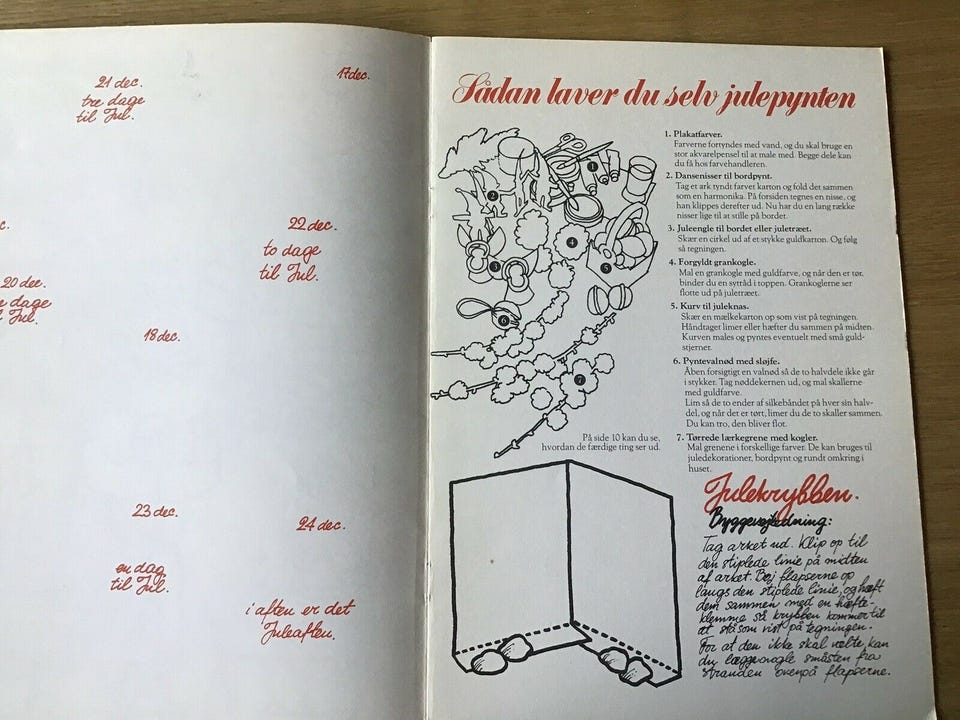 21 dec.
tre dage
til Jul.
17dec.
c.
22 dec.
to dage
til Jul.
20 dec.
dage
Jul.
18 dec.
23 dec.
en dag
til Jul.
24 dec.
i aften er det
Juleaften.
Sådan laver du selv julepynten
1. Plakatfarver.
Farverne fortyndes med vand, og du skal bruge en
stor akvarelpensel til at male med. Begge dele kan
du få hos farvehandleren.
2. Dansenisser til bordpynt.
Tag et ark tyndt farvet karton og fold det sammen
som en harmonika. På forsiden tegnes en nisse, og
han klippes derefter ud. Nu har du en lang række
nisser lige til at stille på bordet.
3. Juleengle til bordet eller juletræet.
Skær en cirkel ud af et stykke guldkarton. Og følg
så tegningen.
4. Forgyldt grankogle.
Mal en grankogle med guldfarve, og når den er tør,
binder du en sytråd i toppen. Grankoglerne ser
flotte ud på juletræet.
5. Kurv til juleknas.
Skær en mælkekarton op som vist på tegningen.
Håndtaget limer eller hæfter du sammen på midten.
Kurven males og pyntes eventuelt med små guld-
stjerner.
6. Pyntevalnød med sløjfe.
Åben forsigtigt en valnød så de to halvdele ikke går
i stykker. Tag nøddekernen ud, og mal skallerne
med guldfarve.
Lim så de to ender af silkebåndet på hver sin halv-
del, og når det er tørt, limer du de to skaller sammen.
Du kan tro, den bliver flot.
7. Tørrede lærkegrene med kogler.
Mal grenene i forskellige farver. De kan bruges til
juledekorationer, bordpynt og rundt omkring i
huset.
1
2
3
4
5
6
7
På side 10 kan du se,
hvordan de færdige ting ser ud.
Julekrybben.
Byggevejledning:
Tag arket ud. Klip op til
den stiplede linie på midten
af arket. Bøj flapserne op
langs den stiplede linie, og hæft
dem sammen med en hæfte-
klemme så krybben kommer til
at stå som vist på tegningen.
For at den ikke skal vælte, kan
du lægge nogle småsten fra
stranden ovenpå flapserne.